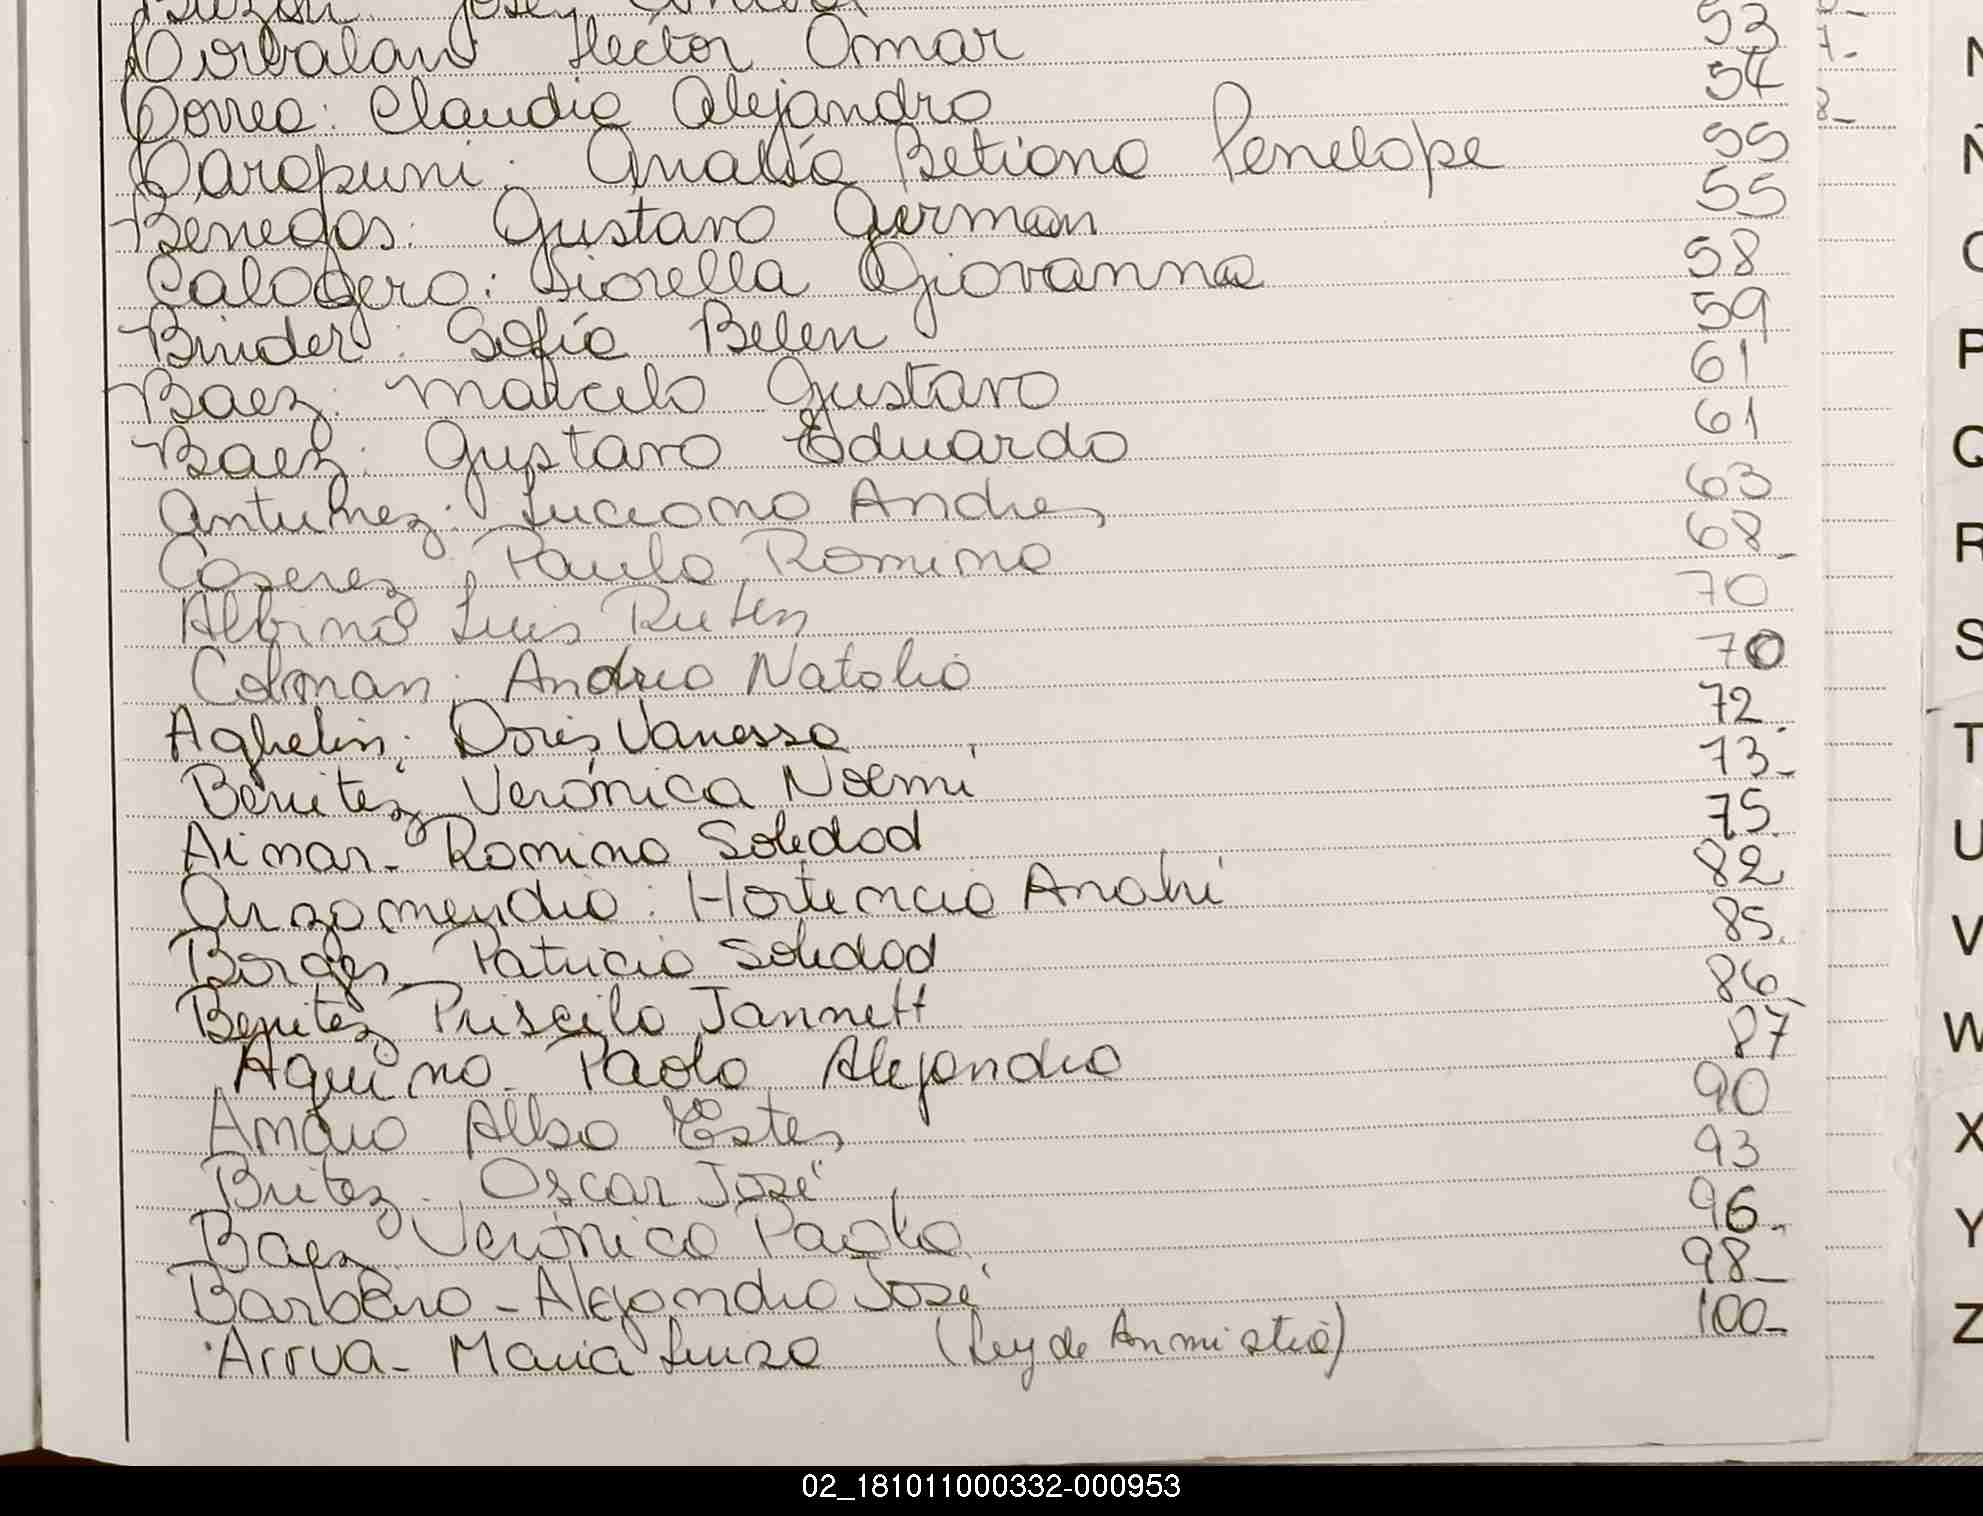 Corvalan Hector Omar 53
Correa: Claudio Alejandro 54
Caropuni: Analía Betiana Penelope 55
Benegas: Gustavo German 55
Calogero: Fiorella Giovanna 58
Binder: Sofía Belen 59
Baez: Marcelo Gustavo 61
Baez: Gustavo Eduardo 61
Antunez: Luciano Andres 63
Caserez Paula Romina 68-
Albino Luis Ruben 70
Colman: Andrea Natalia 70
Aghelin: Doris Vanessa 72
Benitez Verónica Noemí 73-
Aimar- Romina Soledad 75.
Arzamendia: Hortencia Anahí 82
Borges Patricia Soledad 85.
Benitez Priscila Jannett 86-
Aquino- Paola Alejandra 87
Amaro Alba Ester 90
Britez- Oscar José 93
Baez Verónica Paola 96-
Barbaro - Alejandro José 98-
Arrua- Maria Luisa (Ley de Anmistia) 100-
7-
8-
N
Ñ
O
P
Q
R
S
T
U
V
W
X
Y
Z
02_181011000332-000953